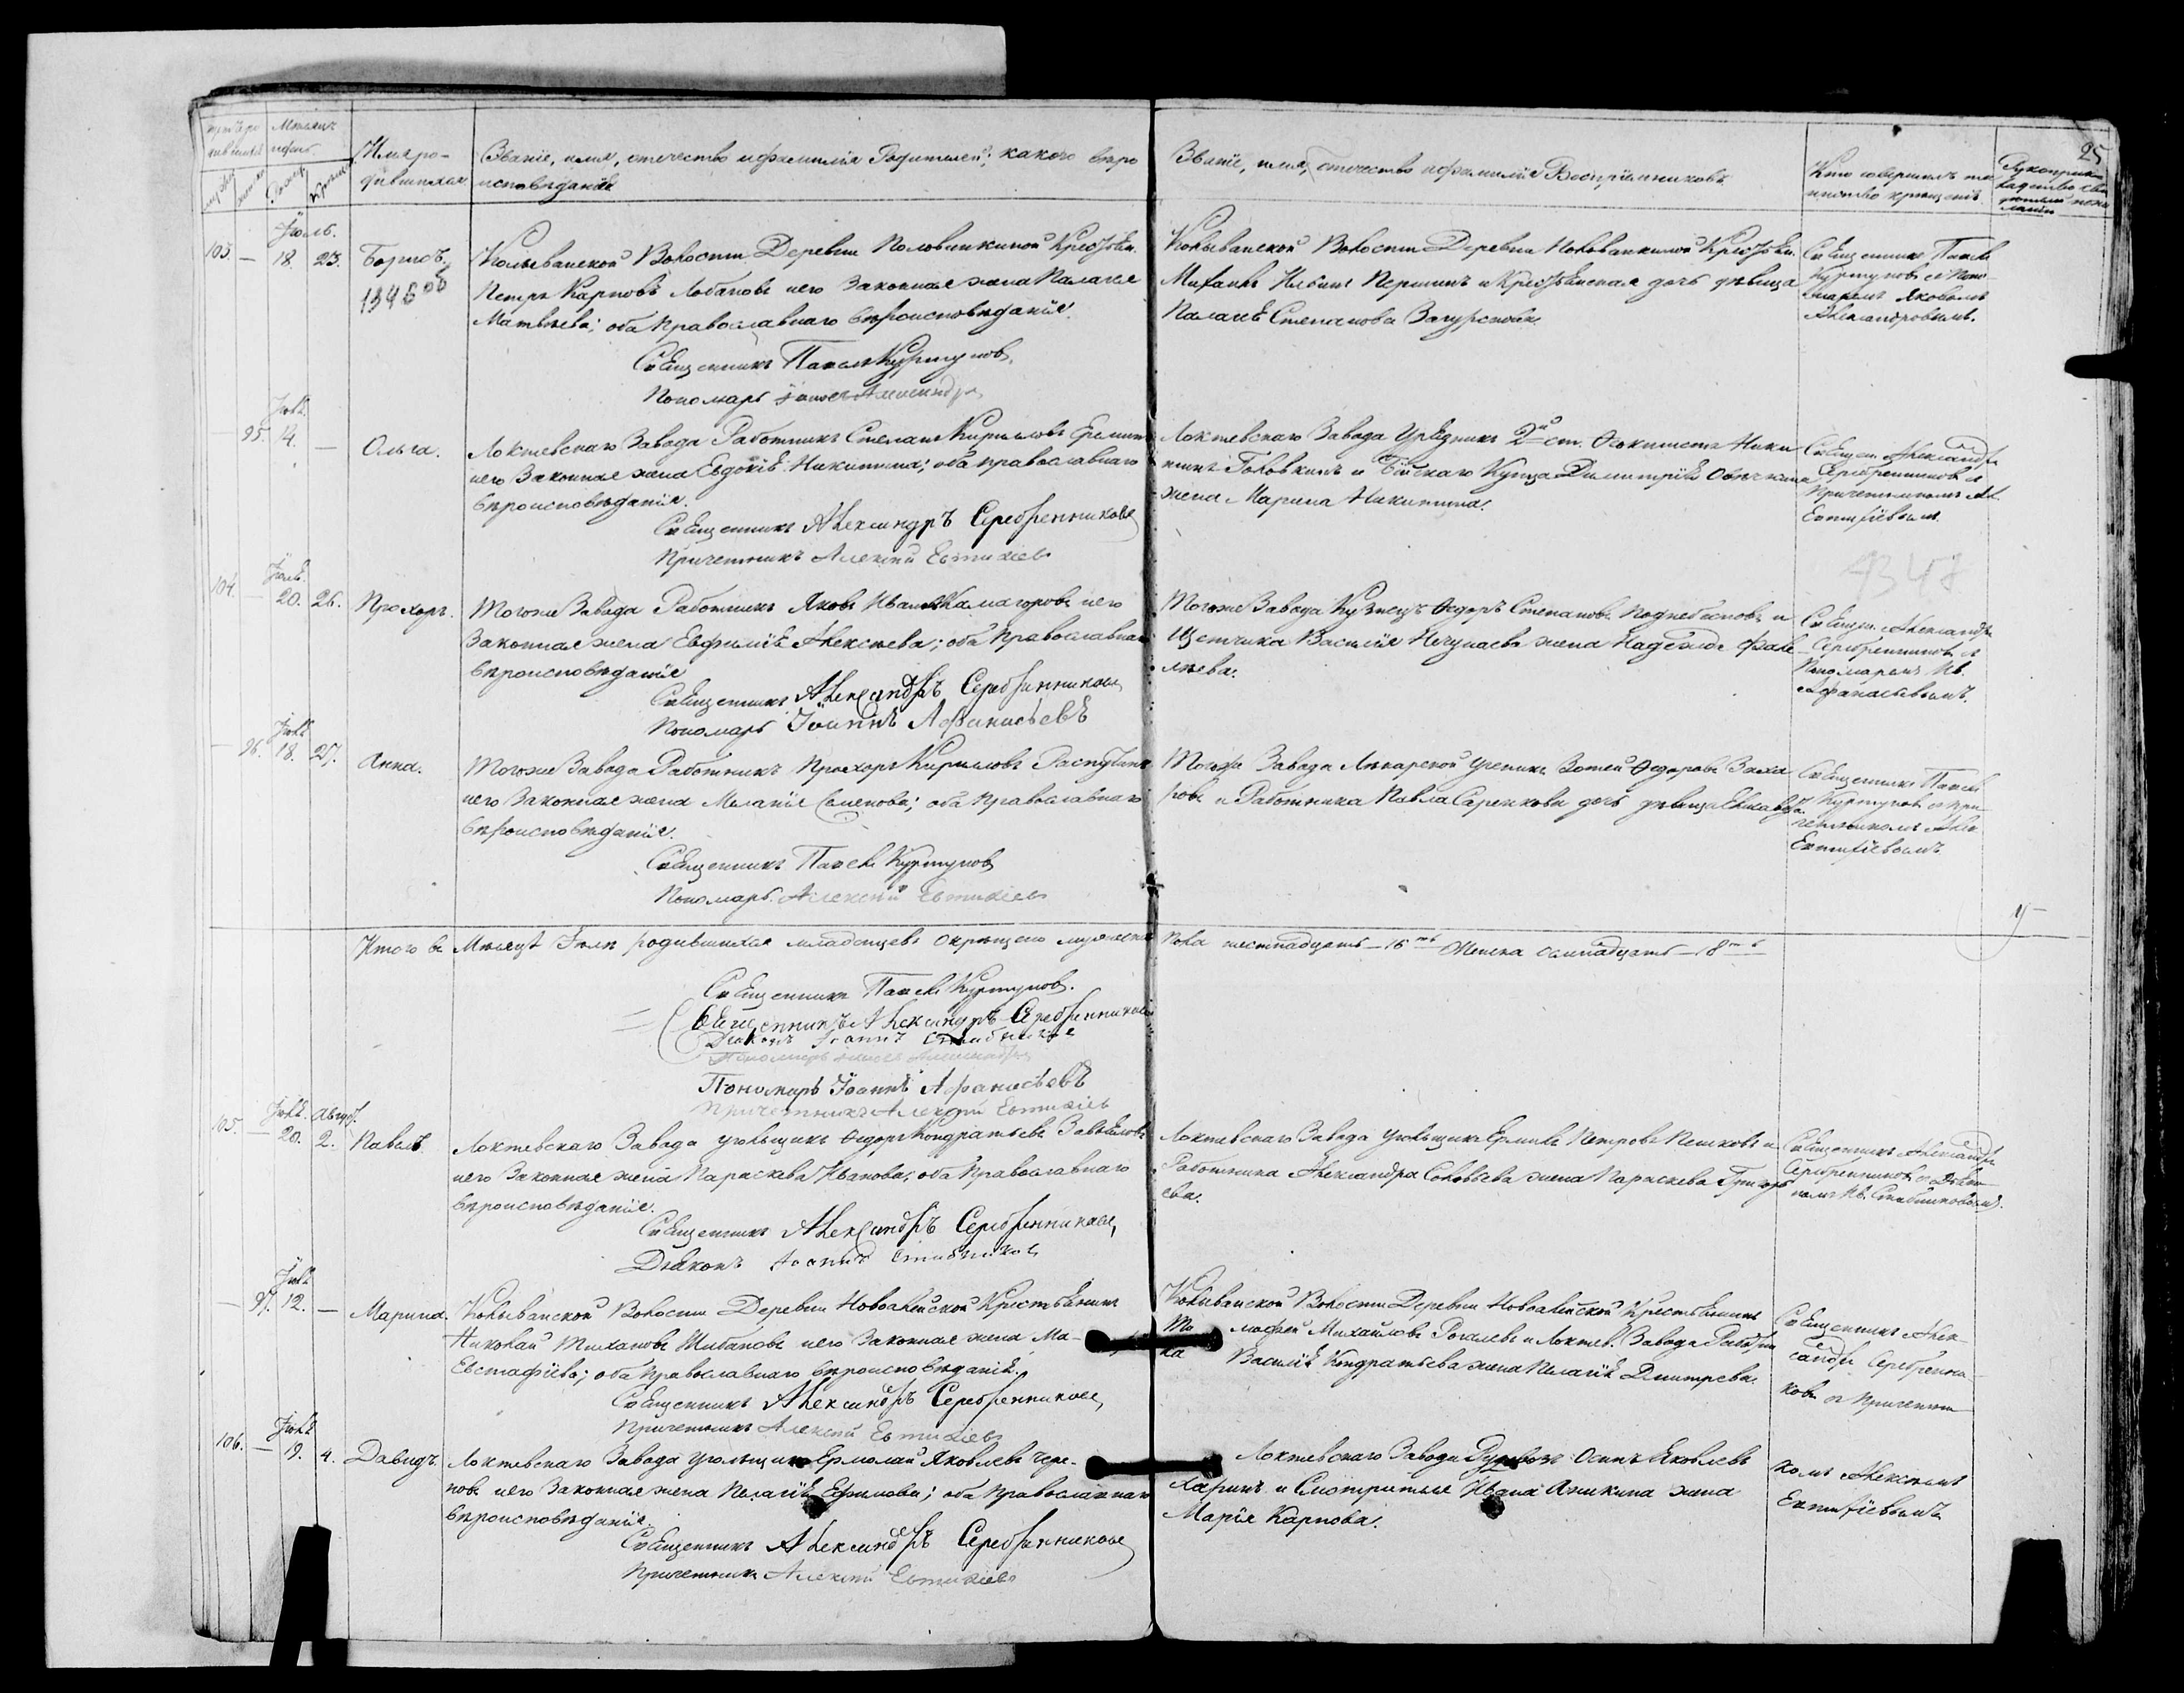 25
Имяро-
дившихся
Званіе, имя, отечество и фамилія Родителей; какого веро
исповеданія
Званіе, имя, отечество и фамилія Воспріемниковъ
Кто совершалъ та
инство крещенія
Іюль.
103. — 18. 23. Борисъ.
Колыванской Волости Деревни Половинкиной Крестьян.
Петръ Карповъ Лобановъ и его Законная жена Палагея
Матвѣева; оба православнаго вѣроисповѣданія.
Священникъ Павелъ Куртуков
Пономарь
Колыванской Волости Деревни Половинкиной Крестьян.
Михаилъ Ильинъ Першинъ и Крестьянская дочь дѣвица
Палагѣя Степанова Загурскова.
Священникъ Павелъ
Куртуковъ с Поно
маремъ Яковомъ
Александровымъ.
Іюль
— 95. 14. — Ольга.
Локтевскаго Завода Работникъ Степанъ Кириловъ
и его Законная жена Евдокія Никитина; оба православнаго
вѣроисповѣданія.
Священникъ Александръ Серебренниковъ
Причетникъ Алексѣй Евтихіевъ
Локтевскаго Завода Урядникъ 2й ст. Феоктистъ Ники
тинъ Головкинъ и Бійскаго Купца Димитрія
жена Марина Никитина.
Священ. Александръ
Серебренниковъ с
Причетникомъ Ал.
Евтихіевымъ.
4348
Іюль.
104. — 20. 26. Прохоръ.
Тогоже Завода Работникъ Яковъ Ивановъ Камагоровъ и его
Законная жена Евфимія Алексѣева; оба Православнаго
вѣроисповѣданія
Священникъ Александръ Серебренниковъ
Пономарь Іоаннъ Афанасьевъ
Тогоже Завода Кузнецъ Федоръ Степановъ Поднебесновъ и
Щетчика Василія Нечунаева жена Надежда Фаде
лѣева.
Священ. Александръ
Серебренниковъ с
Пономаремъ Ив.
Афанасьевымъ.
Іюль
— 96. 18. 27. Анна.
Тогоже Завода Работникъ Прохоръ Кириловъ Распутинъ
и его Законная жена Меланія Семенова; оба Православнаго
вѣроисповѣданія.
Священникъ Павелъ Куртуковъ
Пономарь Алексѣй Евтихіевъ
Тогоже Завода Лекарской ученикъ Зотей Федоровъ Заха
ровъ и Работника Павла Саренкова дочь дѣвица Елисавета.
Священникъ Павелъ
Куртуковъ с при-
четникомъ Алек.
Евтихіевымъ.
Итого въ Мѣсяцѣ Іюлѣ родившихся младенцевъ окрещено мужеска
пола шестнадцать — 16ть Женска осмнадцать — 18ть
Священникъ Павелъ Куртуковъ.
Священникъ Александръ Серебренниковъ
Діаконъ Іоаннъ
Пономарь
Пономарь Іоаннъ Афанасьевъ
Причетникъ Алексѣй Евтихіевъ
Іюль. Август.
105. — 20. 2. Павелъ.
Локтевскаго Завода угольщикъ Федоръ Кондратьевъ Завьяловъ
и его Законная жена Параскева Иванова; оба Православнаго
вѣроисповѣданія.
Священникъ Александръ Серебренниковъ
Діаконъ Іоаннъ
Локтевскаго Завода угольщикъ Ермилъ Петровъ Пешковъ и
Работника Александра Соловьева жена Параскева Григорь
ева.
Священникъ Александръ
Серебренниковъ с Діяко
номъ Ив.
Іюль
— 97. 12. — Марина.
Колыванской Волости Деревни Новоалейской Крестьянинъ
Николай Тихановъ Шибановъ и его Законная жена Ма-
Евстафіева; оба Православнаго вѣроисповѣданія.
Священникъ Александръ Серебренниковъ
Причетникъ Алексѣй Евтихіевъ
Колыванской Волости Деревни Новоалейской Крестьянинъ
Ти мофей Михайловъ Рогалевъ и Локтев. Завода Работни
ка Василія Кондратьева жена Пелагія Дмитрева.
Священникъ Алек-
сандръ Серебренни-
ковъ с Причетни-
Іюль
106. — 19. 4. Давидъ.
Локтевскаго Завода угольщикъ Ермолай Яковлевъ Чере-
новъ и его Законная жена Пелагія Ефимова; оба Православнаго
вѣроисповѣданія.
Священникъ Александръ Серебренниковъ
Причетникъ Алексѣй Евтихіевъ
Локтевскаго Завода Рудовозъ Осипъ Яковлевъ
Ларинъ и Смотрителя Ивана Аникина жена
Марія Карпова.
комъ Алексѣемъ
Евтихіевымъ